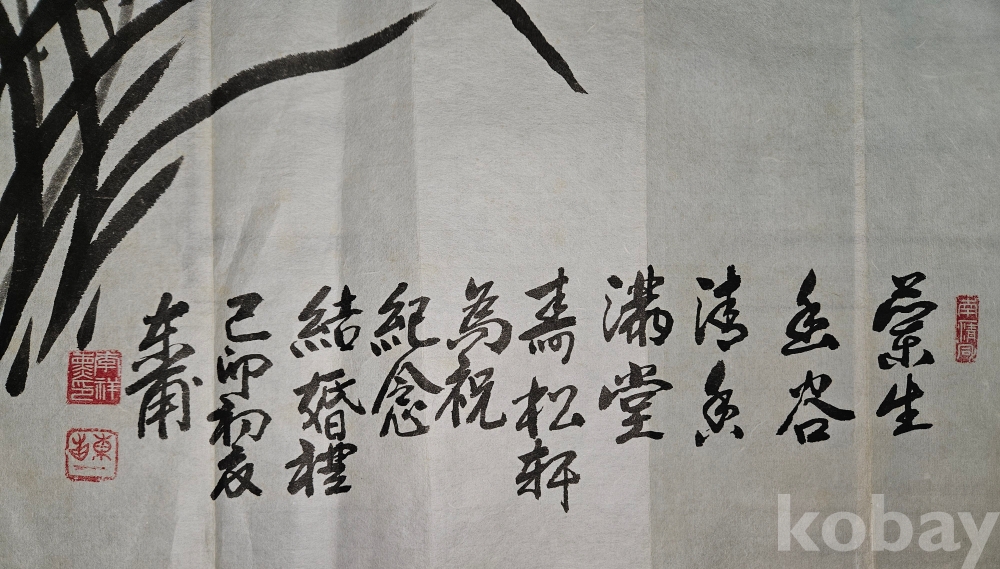 蘭生
幽谷
清香
滿堂
壽松軒
為祝
紀念
結婚禮
己卯初夏
东甫
kobay